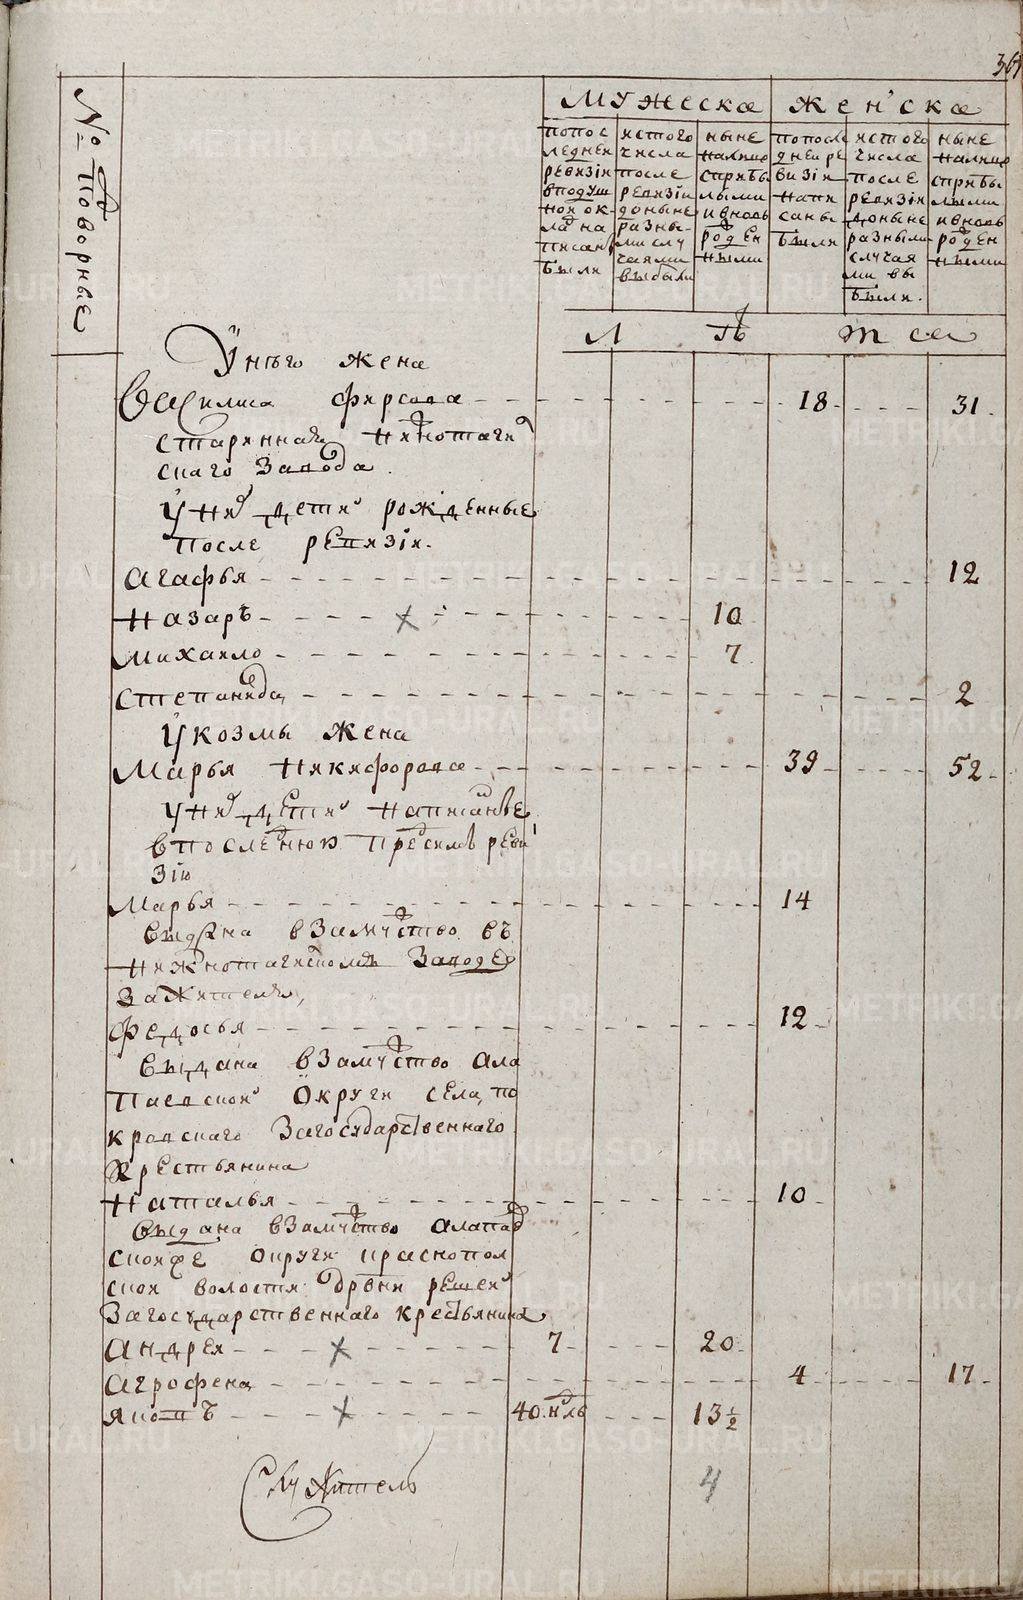 361
№ Подворные
МУЖЕСКА ЖЕНСКА
попос
ледней
ревизіи
вподуш
ной ок-
ладна
писанъ
были
истого
числа
после
ревизіи
доныне
разны-
ми слу
чаями
выбыли
ныне
налицо
сприбы
лыми
ивновь
рожден
ными
попосле
дней ре
визіи
напи
саны
были
истого
числа
после
ревизіи
доныне
разными
случая
ми вы
были.
ныне
налицо
сприбы
лыми
ивновь
рожден
ными
Л ѣ т а
Унего жена
Василиса фирсова 18 31
стариннаго нижнотаги
скаго Завода.
Уних дети рожденные
После ревизіи.
Агафья 12
Назаръ 10
Михаило 7
Степанида 2
Укозмы жена
Марья Никифорова 39 52
Уних дети написанные
впоследнюю пресимъ реви
зію
Марья 14
Выдана взамужство въ
Нижнотагилскомъ Заводе
Зажителя,
Федосья 12
Выдана взамужство Ала
Паевской Округи села по
кровскаго Загосударственнаго
Крестьянина
Наталья 10
Выдана взамужство алапаев
скойже округи краснопол
ской волости дрвни решей
Загосударственнаго крестьянина
Андрей 7 20
Агрофена 4 17
Яковъ 40. н҃лъ 13½
Служитель 4